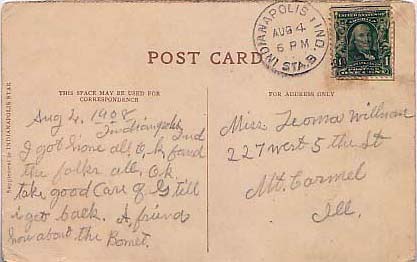 POST CARD
INDIANAPOLIS, IND.
AUG 4
6 PM
STA. B.
THIS SPACE MAY BE USED FOR
CORRESPONDENCE
FOR ADDRESS ONLY
Aug 4, 1908
Indianapolis Ind
I got home all O.K. found
the folks all O.K.
take good care of till
i get back. A friend
how about the
Miss Leona
227 West 5 th St
Mt. Carmel
Ill.
INDIANAPOLIS STAR